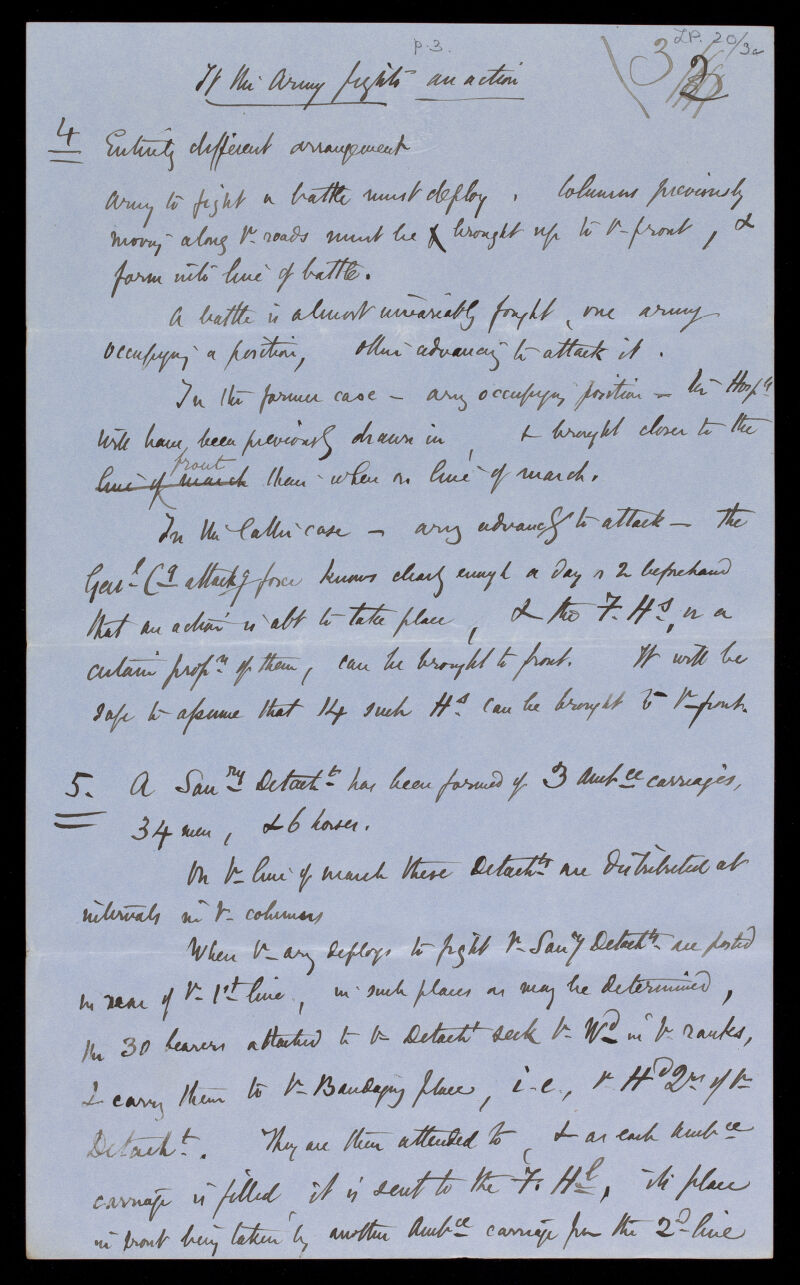 p.3.
LP. 20/3a
3 2
If the Army fights an action
4 Entirely different arrangement
Army to fight a battle must deploy. Columns previously
moving along V– roads must be brought up to V– front, &
form into line of battle.
A battle is almost invariably fought, one army
occupying a position, other advancing to attack it.
In the former case – army occupying position – the Hosp.ls
will have been previously drawn in, & brought closer to the
line of march front than when on line of march.
In the latter case – army advancg to attack – the
Gen.l Cg attackg force knows clearly enough a day or 2 beforehand
that an action is abt to take place, & the F. H.s, or a
certain prop.n of them, can be brought to front. It will be
safe to assume that 14 such H.s can be brought to V– front.
5. A San.ry Detach.t has been formed of 3 Amb.ce carriages,
34 men, & 6 horses.
On V– line of march these Detach.ts are distributed at
intervals in V– columns
When V– army deploys to fight V– San.y Detach.ts are posted
in rear of V– 1st line, in such places as may be determined,
the 30 bearers attached to V– Detach.t seek V– W.d in V– ranks,
& carry them to V– Bandaging place, i.e., V– H.d Q.rs of V–
Detach.t. They are then attended to, & as each Amb.ce
carriage is filled, it is sent to the F. H.l, its place
in front being taken by another Amb.ce carriage from the 2d line